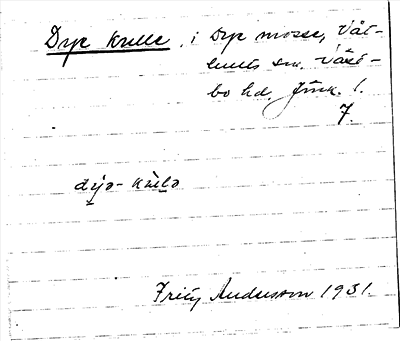 Dye kulle, i Dye mosse, Våt-
tuelts sn. Väst-
bo hd. Jönk. l.
7.
dýə- kùlə
Fritz Andersson 1931.